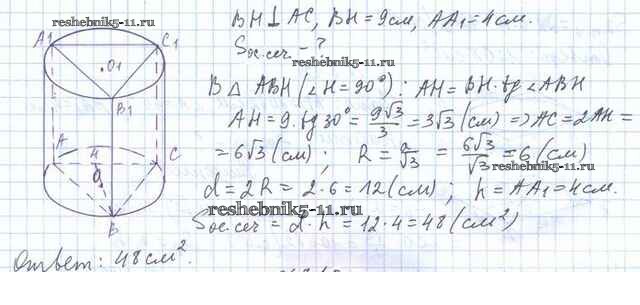 reshebnik5-11.ru
BH⊥AC, BH = 9см, AA₁ = 4см.
Sос.сеч - ?
A1 C1 O1 B1
В △ ABH (∠H = 90°): AH = BH · tg ∠ABH
AH = 9 · tg 30° = 9√3/3 = 3√3 (см) ⇒ AC = 2AH =
= 6√3 (см); R = a/√3 = 6√3/√3 = 6 (см)
reshebnik5-11.ru
A H C O B
d = 2R = 2 · 6 = 12 (см); h = AA₁ = 4см.
reshebnik5-11.ru
Sос.сеч = d · h = 12 · 4 = 48 (см²)
Ответ: 48 см².